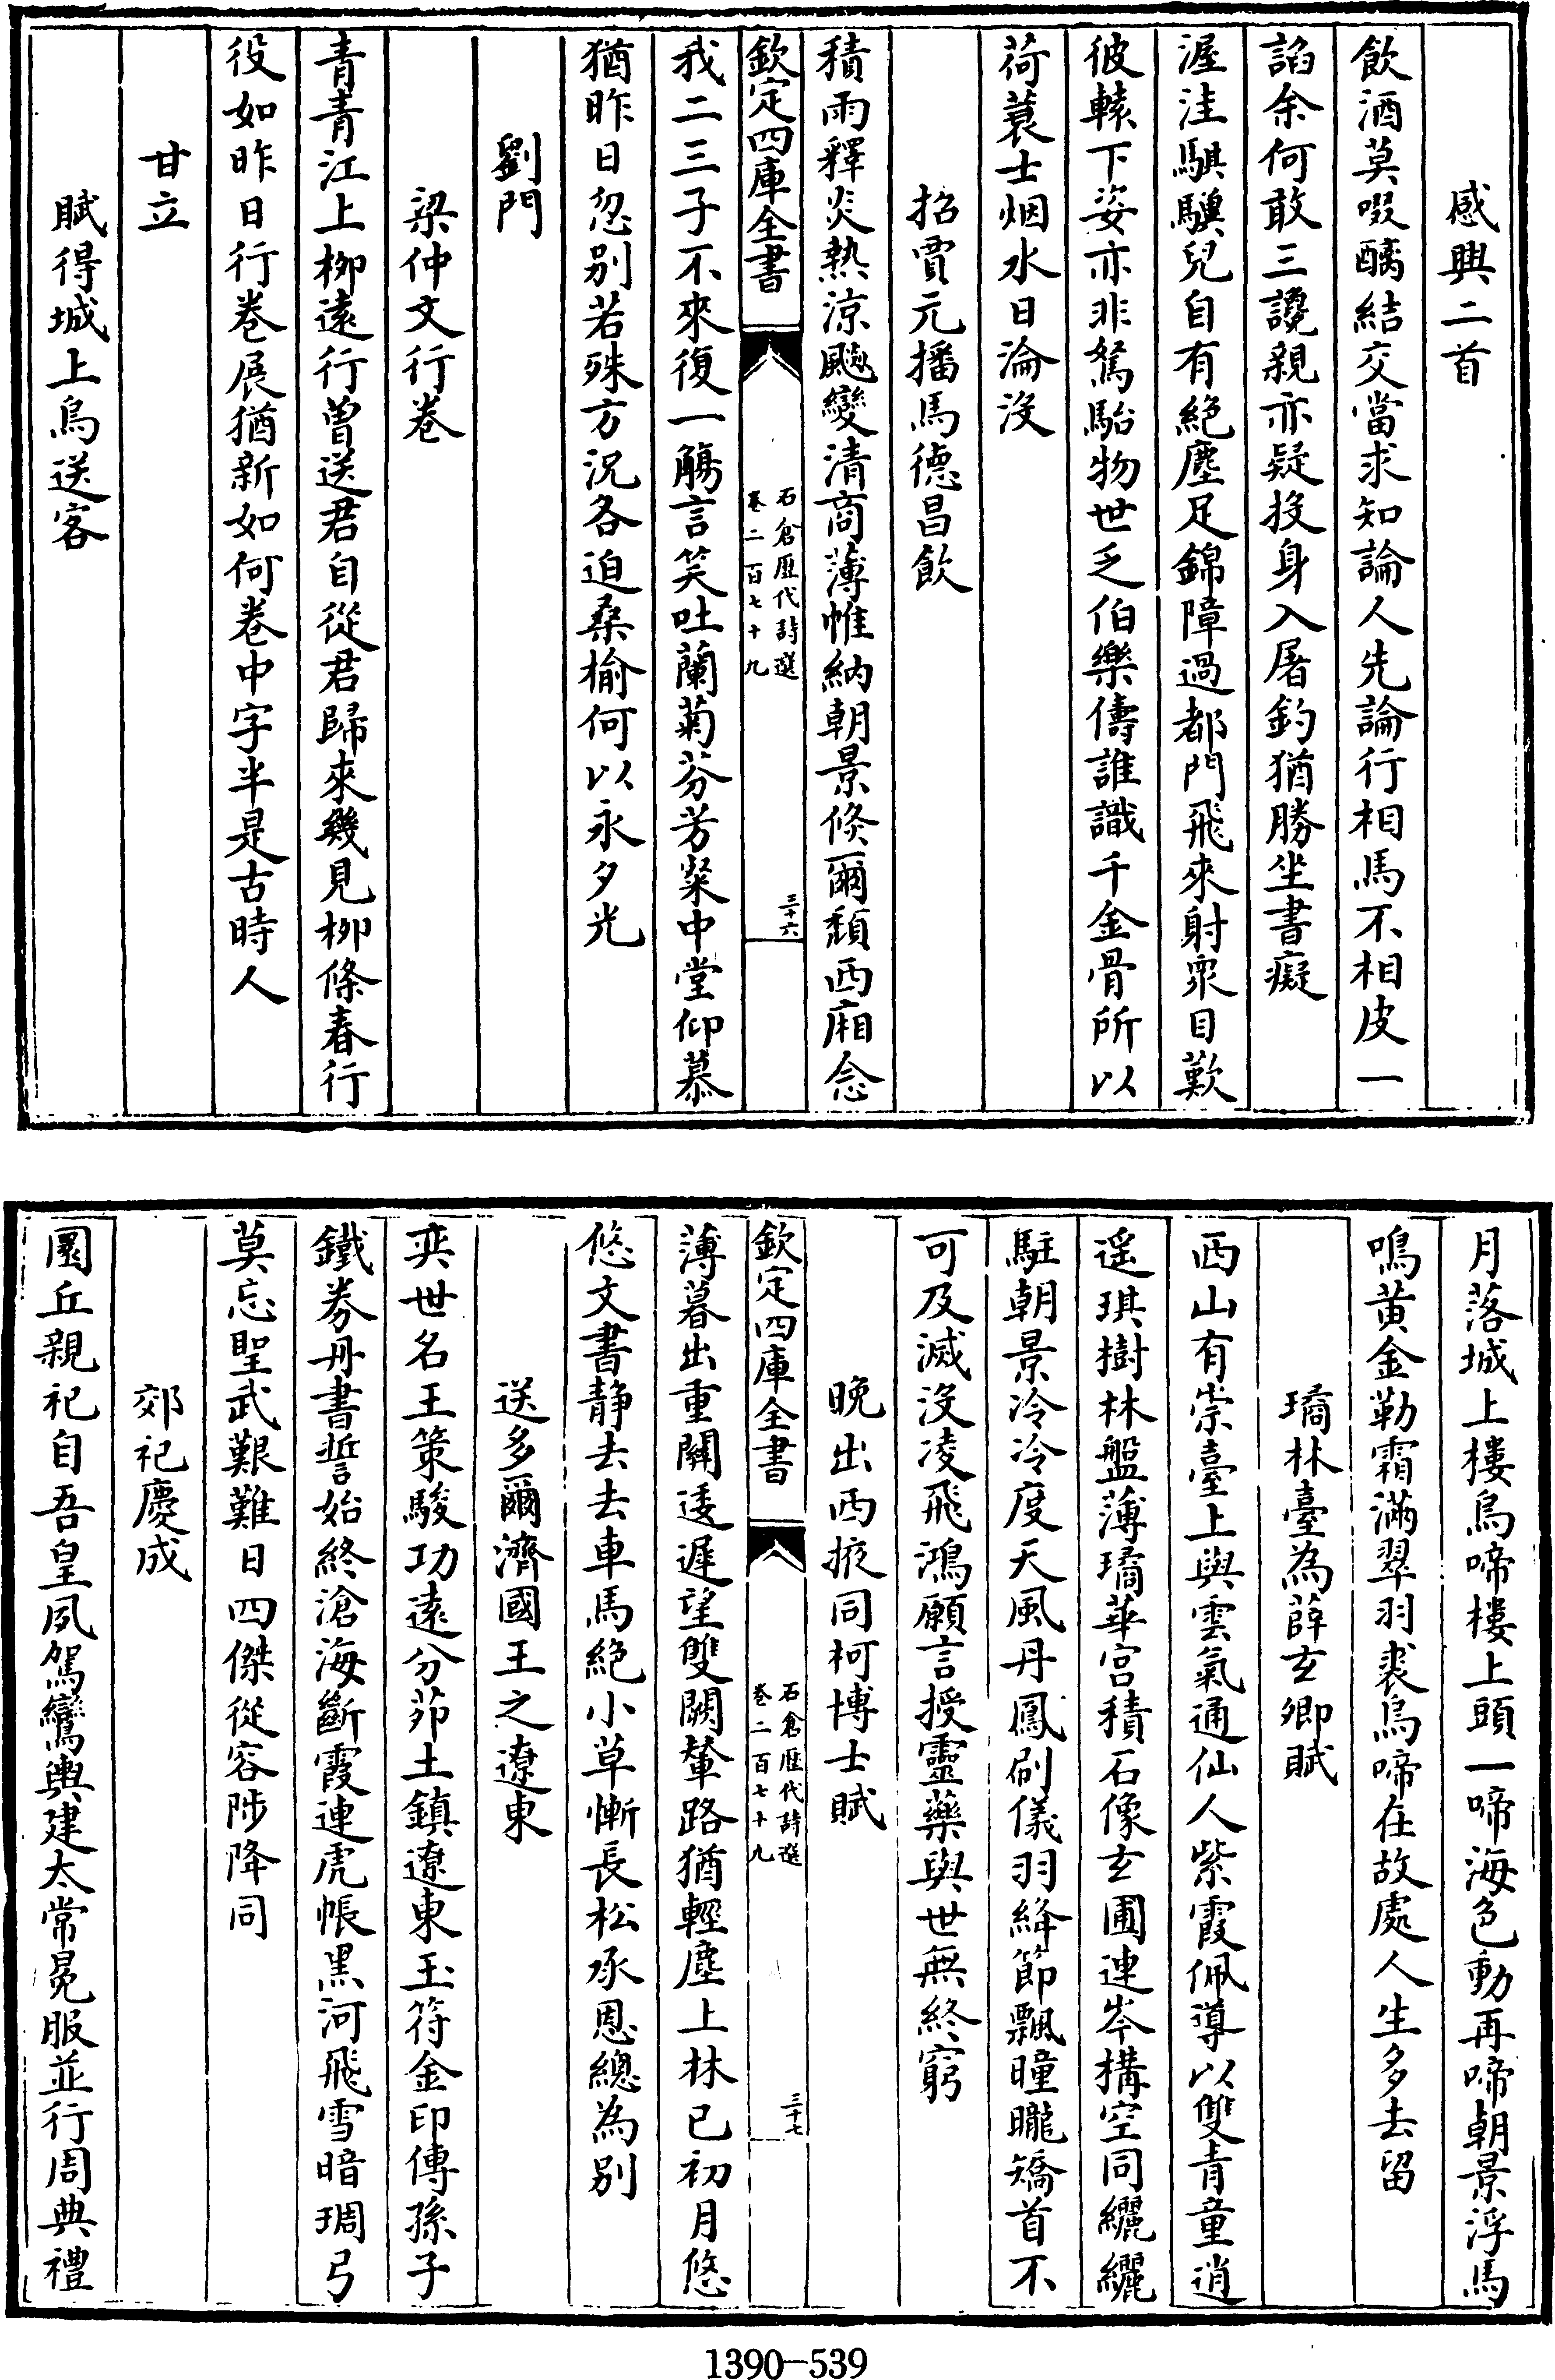 感興二首
飲酒莫啜醨結交當求知論人先論行相馬不相皮一
諂余何敢三讒親亦疑投身入屠釣猶勝坐書癡
渥洼騏驥兒自有絶塵足錦障過都門飛來射衆目歎
彼轅下姿亦非駑駘物世乏伯樂儔誰識千金骨所以
荷蓑士烟水日淪没
招賈元播馬德昌飲
積雨釋炎熱涼飈變清商薄帷納朝景倐爾頽西廂念
欽定四庫全書
石倉歷代詩選
卷二百七十九
三十六
我二三子不來復一觴言笑吐蘭菊芬芳粲中堂仰慕
猶昨日忽别若殊方況各迫桑榆何以永夕光
劉門
梁仲文行巻
青青江上栁遠行曽送君自從君歸來幾見栁條春行
役如昨日行巻展猶新如何巻中字半是古時人
甘立
賦得城上烏送客
月落城上樓烏啼樓上頭一啼海色動再啼朝景浮馬
鳴黄金勒霜滿翠羽裘烏啼在故處人生多去留
璚林臺為薛玄卿賦
西山有崇臺上與雲氣通仙人紫霞佩導以雙青童逍
遥琪樹林盤薄璚華宫積石像玄圃連岑構空同纚纚
駐朝景泠泠度天風丹鳳刷儀羽絳節飄曈曨矯首不
可及滅没凌飛鴻願言授靈藥與世無終窮
晚出西掖同柯博士賦
欽定四庫全書
石倉歷代詩選
卷二百七十九
三十七
薄暮出重闗逶遲望雙闕輦路猶輕塵上林已初月悠
悠文書静去去車馬絶小草慚長松承恩總為别
送多爾濟國王之遼東
奕世名王策駿功逺分茆土鎮遼東玉符金印傳孫子
鐵劵丹書誓始終滄海斷霞連虎帳黒河飛雪暗琱弓
莫忘聖武艱難日四傑從容陟降同
郊祀慶成
圜丘親祀自吾皇夙駕鸞輿建太常冕服並行周典禮
1390-539